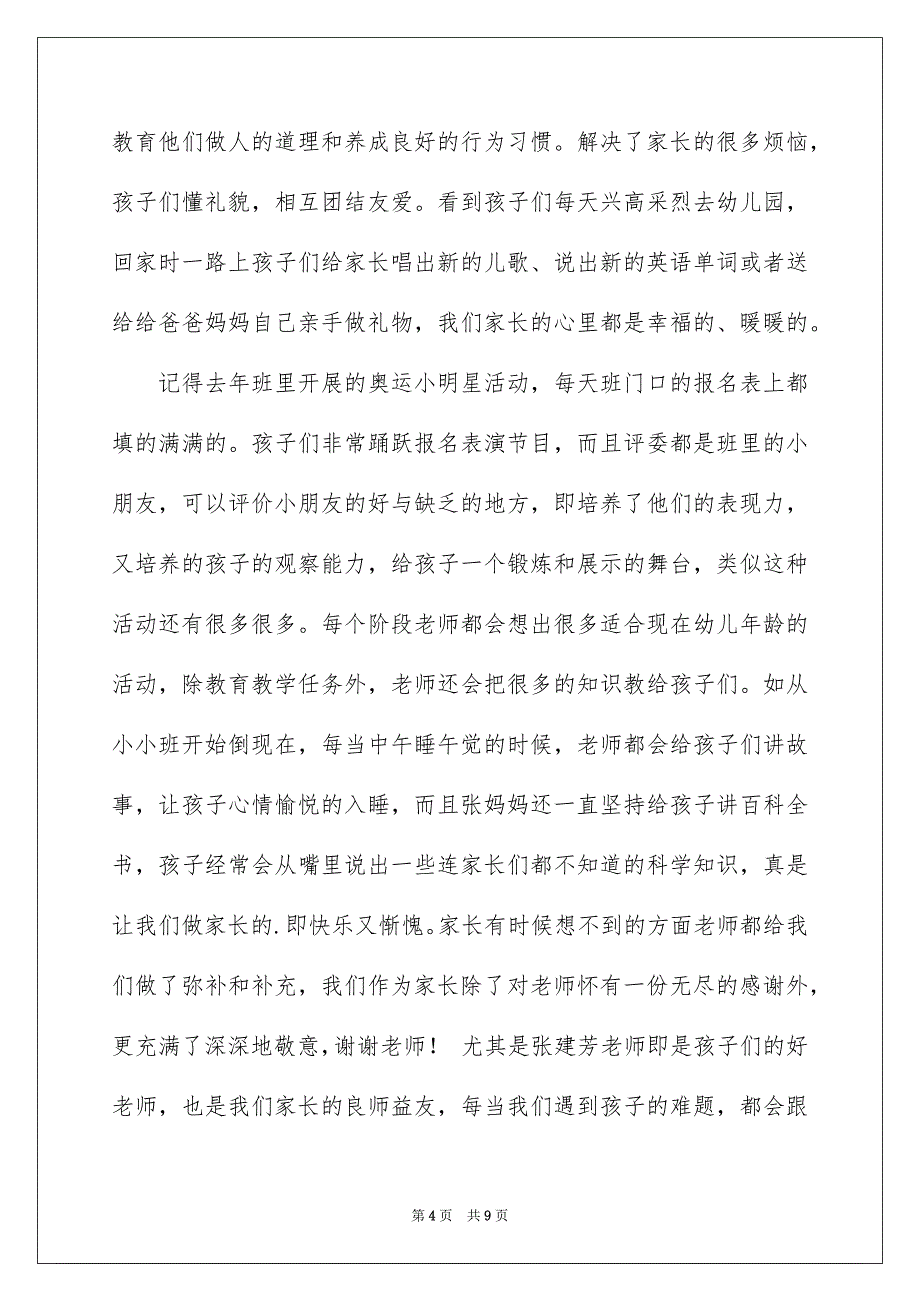 教育他们做人的道理和养成良好的行为习惯。解决了家长的很多烦恼，
孩子们懂礼貌，相互团结友爱。看到孩子们每天兴高采烈去幼儿园，
回家时一路上孩子们给家长唱出新的儿歌、说出新的英语单词或者送
给给爸爸妈妈自己亲手做礼物，我们家长的心里都是幸福的、暖暖的。
记得去年班里开展的奥运小明星活动，每天班门口的报名表上都
填的满满的。孩子们非常踊跃报名表演节目，而且评委都是班里的小
朋友，可以评价小朋友的好与缺乏的地方，即培养了他们的表现力，
又培养的孩子的观察能力，给孩子一个锻炼和展示的舞台，类似这种
活动还有很多很多。每个阶段老师都会想出很多适合现在幼儿年龄的
活动，除教育教学任务外，老师还会把很多的知识教给孩子们。如从
小小班开始倒现在，每当中午睡午觉的时候，老师都会给孩子们讲故
事，让孩子心情愉悦的入睡，而且张妈妈还一直坚持给孩子讲百科全
书，孩子经常会从嘴里说出一些连家长们都不知道的科学知识，真是
让我们做家长的.即快乐又惭愧。家长有时候想不到的方面老师都给我
们做了弥补和补充，我们作为家长除了对老师怀有一份无尽的感谢外，
更充满了深深地敬意,谢谢老师！ 尤其是张建芳老师即是孩子们的好
老师，也是我们家长的良师益友，每当我们遇到孩子的难题，都会跟
第4页 共9页